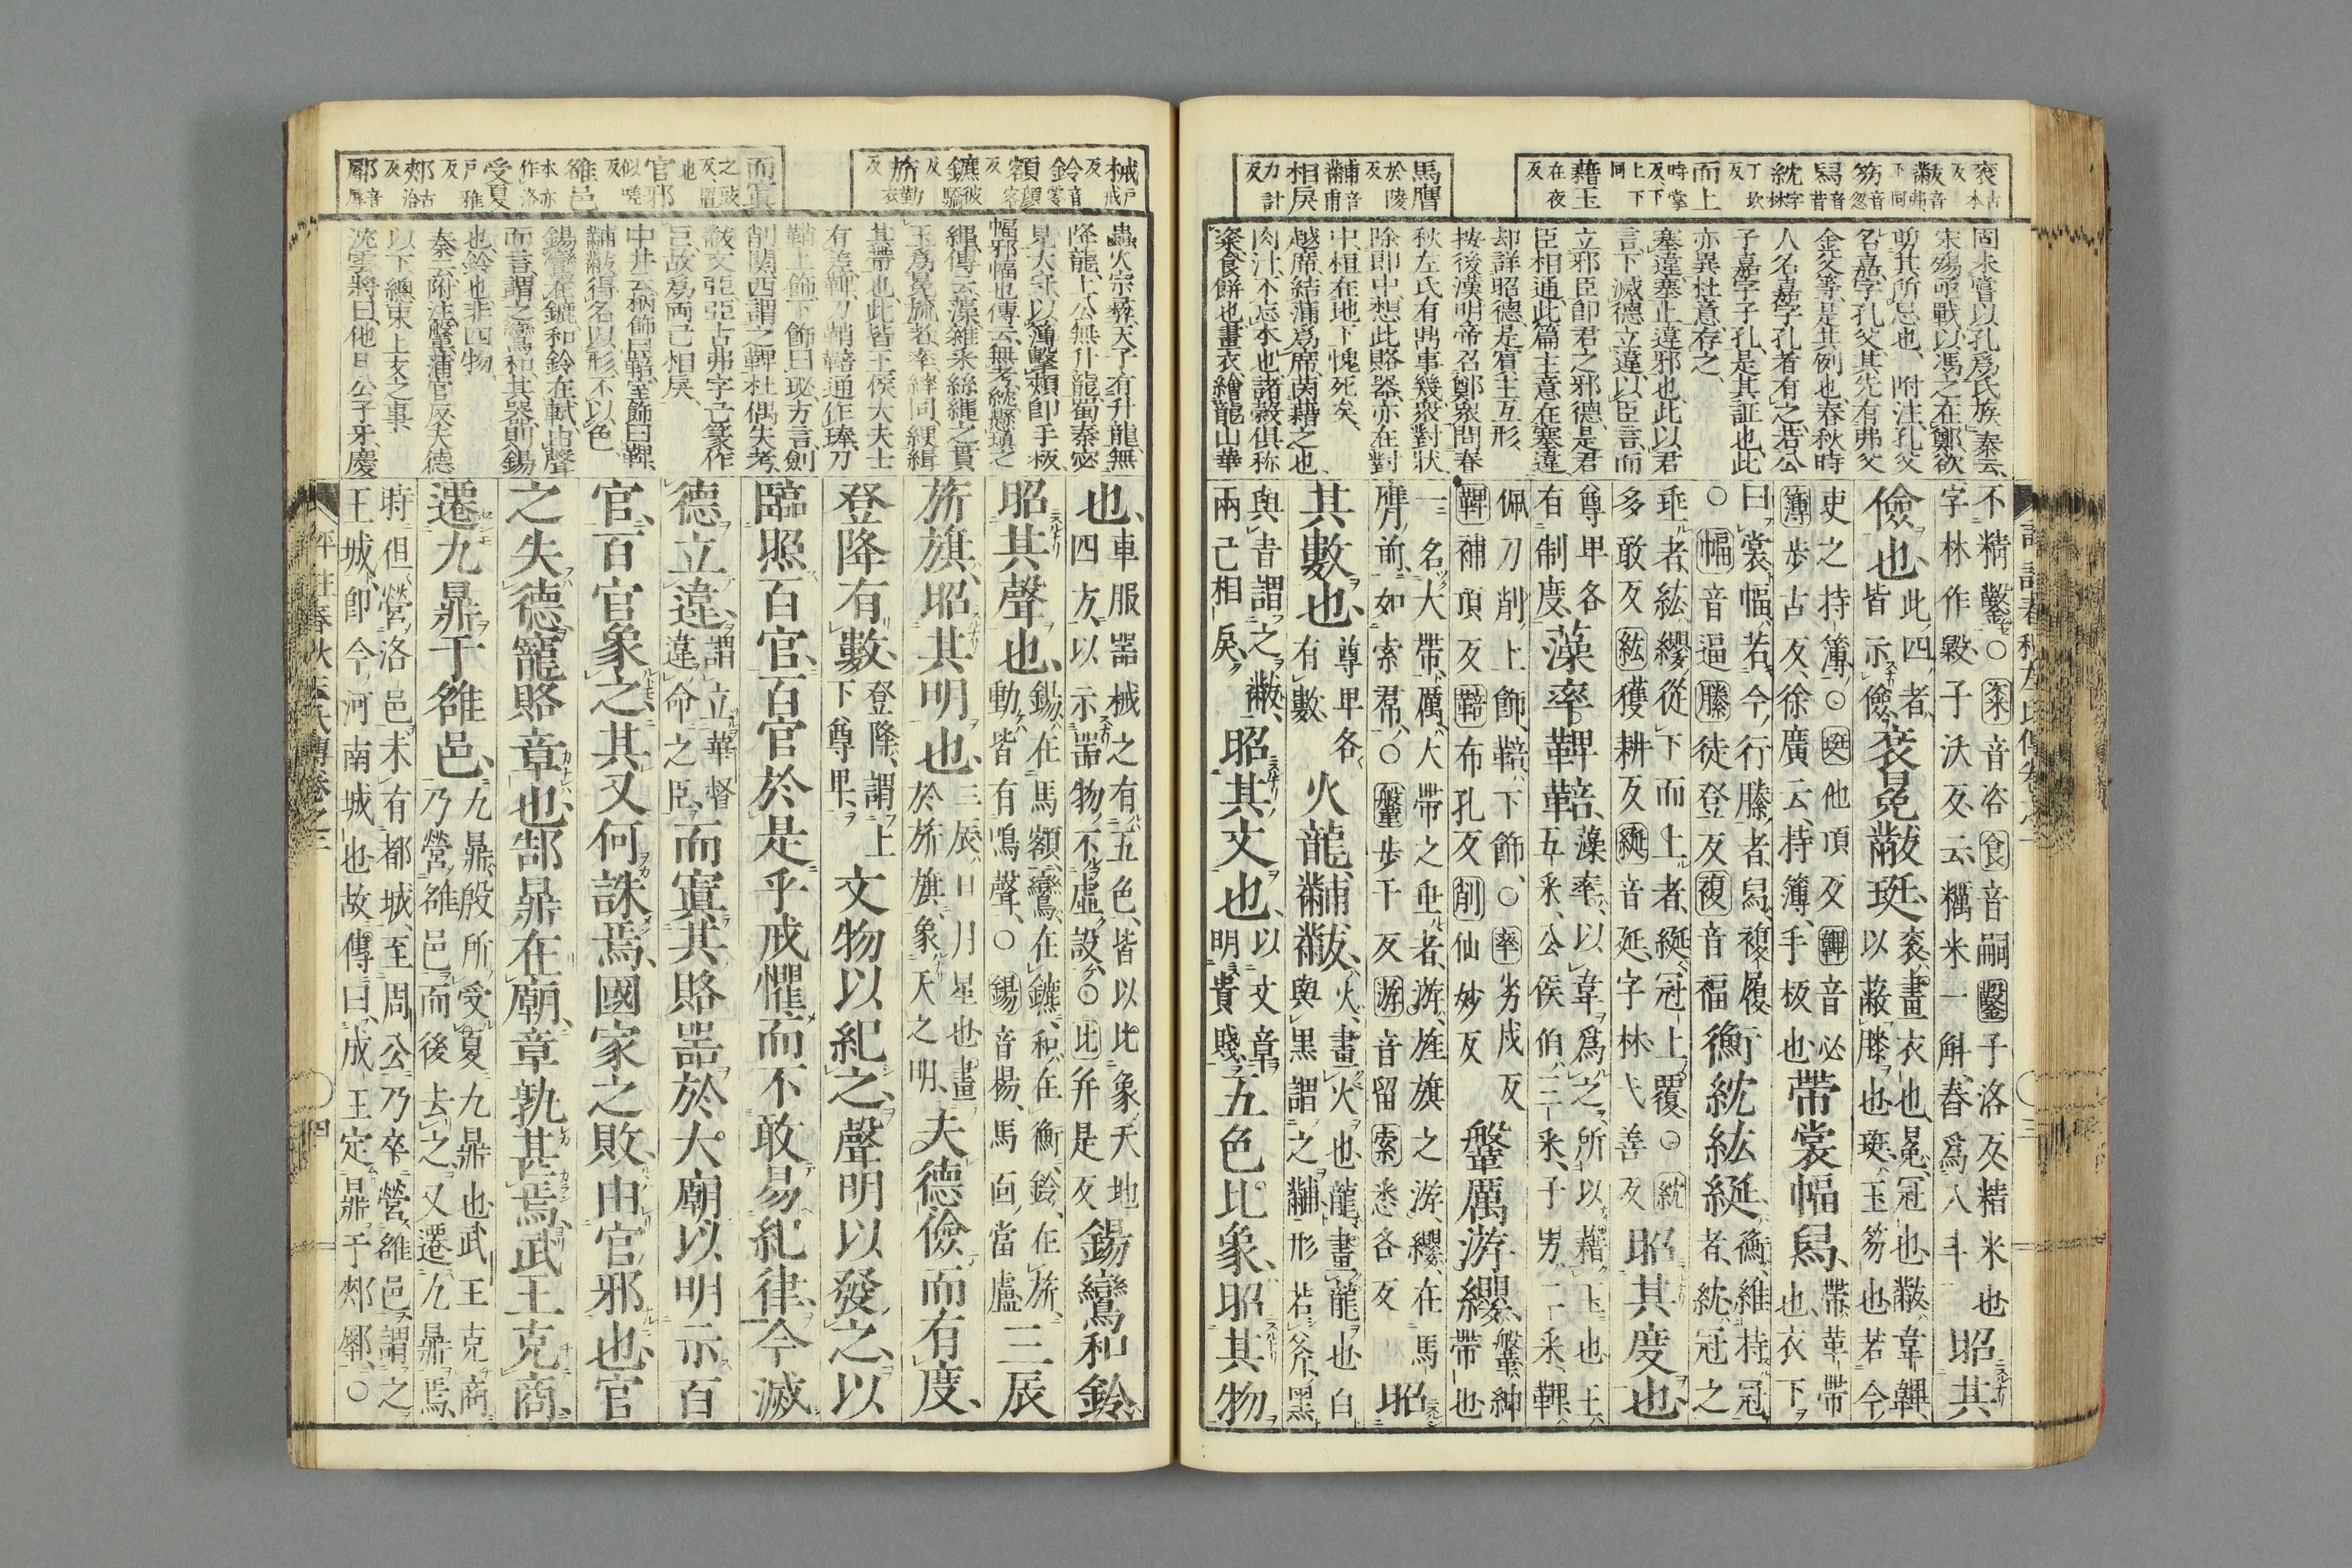 袞古本反
黻音弗下同
笏音忽
舄音昔
紞字林丁坎反
而上時掌反下上下同
藉玉在夜反
馬膺於陵反
黼音甫
相戾力計反
固未嘗以孔爲氏族秦云
宋殤
戰以馮之在鄭欲
附注孔父
名嘉字孔父其先有弗父
金父等是其例也春秋時
人名嘉字孔者有之若公
子嘉字子孔是其証也此
亦異杜意存之
塞違塞止違邪也此以君
言下滅德立違以臣言而
立邪臣卽君之邪德是君
臣相通此篇主意在塞違
却詳昭德是賓主互形
按後漢明帝召鄭衆問春
秋左氏有鼎事幾衆對狀
除卽中想此賂器亦在對
中桓在地下愧死矣
越席結蒲爲席茵藉之也
肉汁不忘本也諸穀俱称
粢食餅也畫衣繪龍山華
不精鑿○粢音咨食音嗣鑿子洛反精米也
字林作毇子沃反云糲米一斛舂爲八斗
昭其
儉也
此四者
皆示儉
袞冕黻珽
袞畫衣也冕冠也黻韋韠
以蔽膝也珽玉笏也若今
吏之持簿○珽他頂反韠音必
簿步古反徐廣云持簿手板也
帶裳幅舄
帶革帶也衣下
曰裳幅若今行縢者舄複履
○幅音逼縢徒登反複音福
衡紞紘綖
衡維持冠者紞冠之
垂者紘纓從下而上者綖冠上覆○紞
多敢反紘獲耕反綖音延字林弋善反
昭其度也
尊卑各
有制度
藻率鞞鞛
藻率以韋爲之所以藉玉也王
五采公侯伯三采子男二采鞞
佩刀削上飾鞛下飾○率劣戌反
鞞補頂反鞛布孔反削仙妙反
鞶厲游纓
鞶紳帶也
一名大帶厲大帶之垂者游旌旗之游纓在馬
膺前如索帬○鞶步干反游音留索悉各反
昭
其數也
尊卑各
有數
火龍黼黻
火畫火也龍畫龍也白
與黑謂之黼形若斧黑
與靑謂之黻
兩己相戾
昭其文也
以文章
明貴賤
五色比象昭其物
評註春秋左氏傳卷之三
三
械戶戒反
鈴音零
額顏客反
鑣彼驕反
旂勤衣反
而寘之豉反置也
官邪似嗟反
雒邑本亦作洛
受夏戶雅反
郟古洽反
鄏音辱
蟲火宗彝天子有升龍無
降龍上公無升龍蜀秦宓
見太守以簿擊頰卽手板
幅邪幅也傳云無考紞懸瑱之
繩傳云藻雜采絲繩之貫
玉爲冕旒者率繂同綆緝
其帶也此皆王侯大夫士
有差鞞刀鞘鞛通作琫刀
鞘上飾下飾曰珌方言劍
削関西謂之鞞杜偶失考
黻文亞亞古弗字己篆作
故爲両己相戾
中井云柄飾曰鞛室飾曰鞞
黼黻得名以形不以色
鍚鸞在鑣和鈴在軾由聲
而言謂之鸞和其器則鍚
也鈴也非四物
秦云附注鞶蒲官反大德
以下總束上文之事
沈云將曰他日公子牙慶
也
車服器械之有五色皆以比象天地
四方以示器物不虛設○比幷是反
鍚鸞和鈴
昭其聲也
鍚在馬額鸞在鑣和在衡鈴在旂
動皆有鳴聲○鍚音揚馬面當盧
三辰
旂旗昭其明也
三辰日月星也畫
於旂旗象天之明
夫德儉而有度
登降有數
登降謂上
下尊卑
文物以紀之聲明以發之以
臨照百官百官於是乎戒懼而不敢易紀律今滅
德立違
謂立華督
違命之臣
而寘其賂器於大廟以明示百
官百官象之其又何誅焉國家之敗由官邪也官
之失德寵賂章也郜鼎在廟章孰甚焉武王克商
遷九鼎于雒邑
九鼎殷所受夏九鼎也武王克商
乃營雒邑而後去之又遷九鼎焉
時但營洛邑未有都城至周公乃卒營雒邑謂之
王城卽今河南城也故傳曰成王定鼎于郟鄏○
評註春秋左氏傳卷之三
四